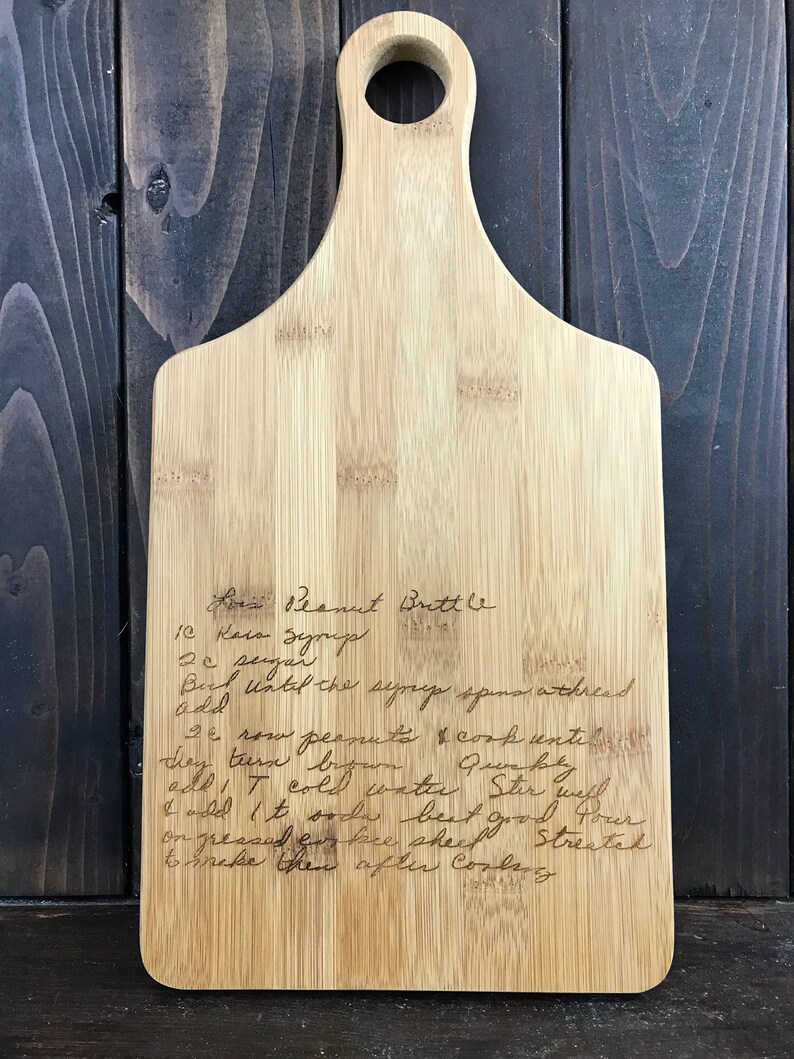 Lois Peanut Brittle
1c Karo syrup
2c sugar
Boil until the syrup spins a thread
add
2c raw peanuts & cook until
they turn brown Quickly
add 1 T cold water Ster well
& add 1 t soda beat good Pour
on greased cookie sheet Streatch
to make thin after cooling